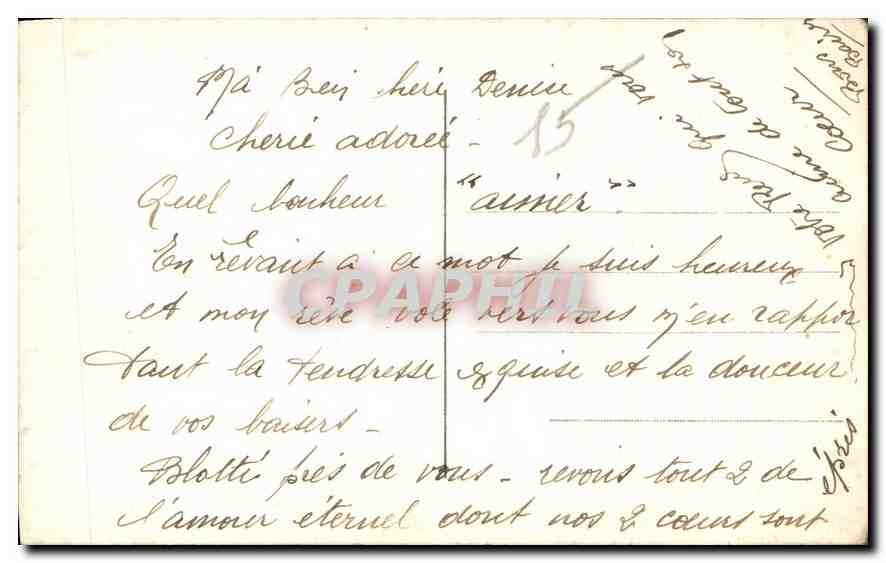 Ma Bien chéri Denise
Cherie adorée -
15
Quel bonheur "aimer"
En rêvant à ce mot je suis heureux
et mon rêve vole vers vous m'en rappor
tant la tendresse exquise et la douceur
de vos baisers -
Blotti près de vous - revons tout 2 de
l'amour éternel dont nos 2 cœurs sont
épris
Votre qui vous
adore de tout son
Coeur
Bons
Baisers
CPAPHIL